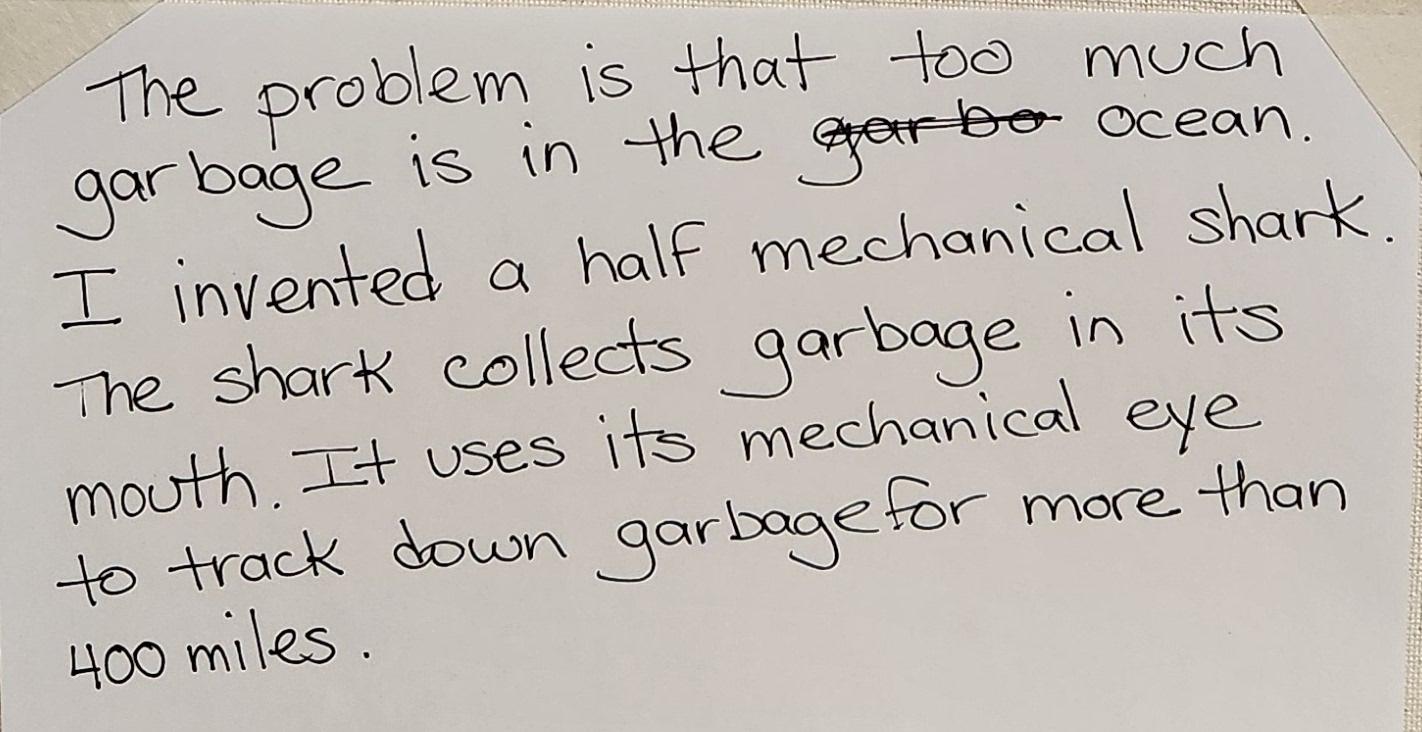 The problem is that too much
garbage is in the ~~garba~~ ocean.
I invented a half mechanical shark.
The shark collects garbage in its
mouth. It uses its mechanical eye
to track down garbage for more than
400 miles.